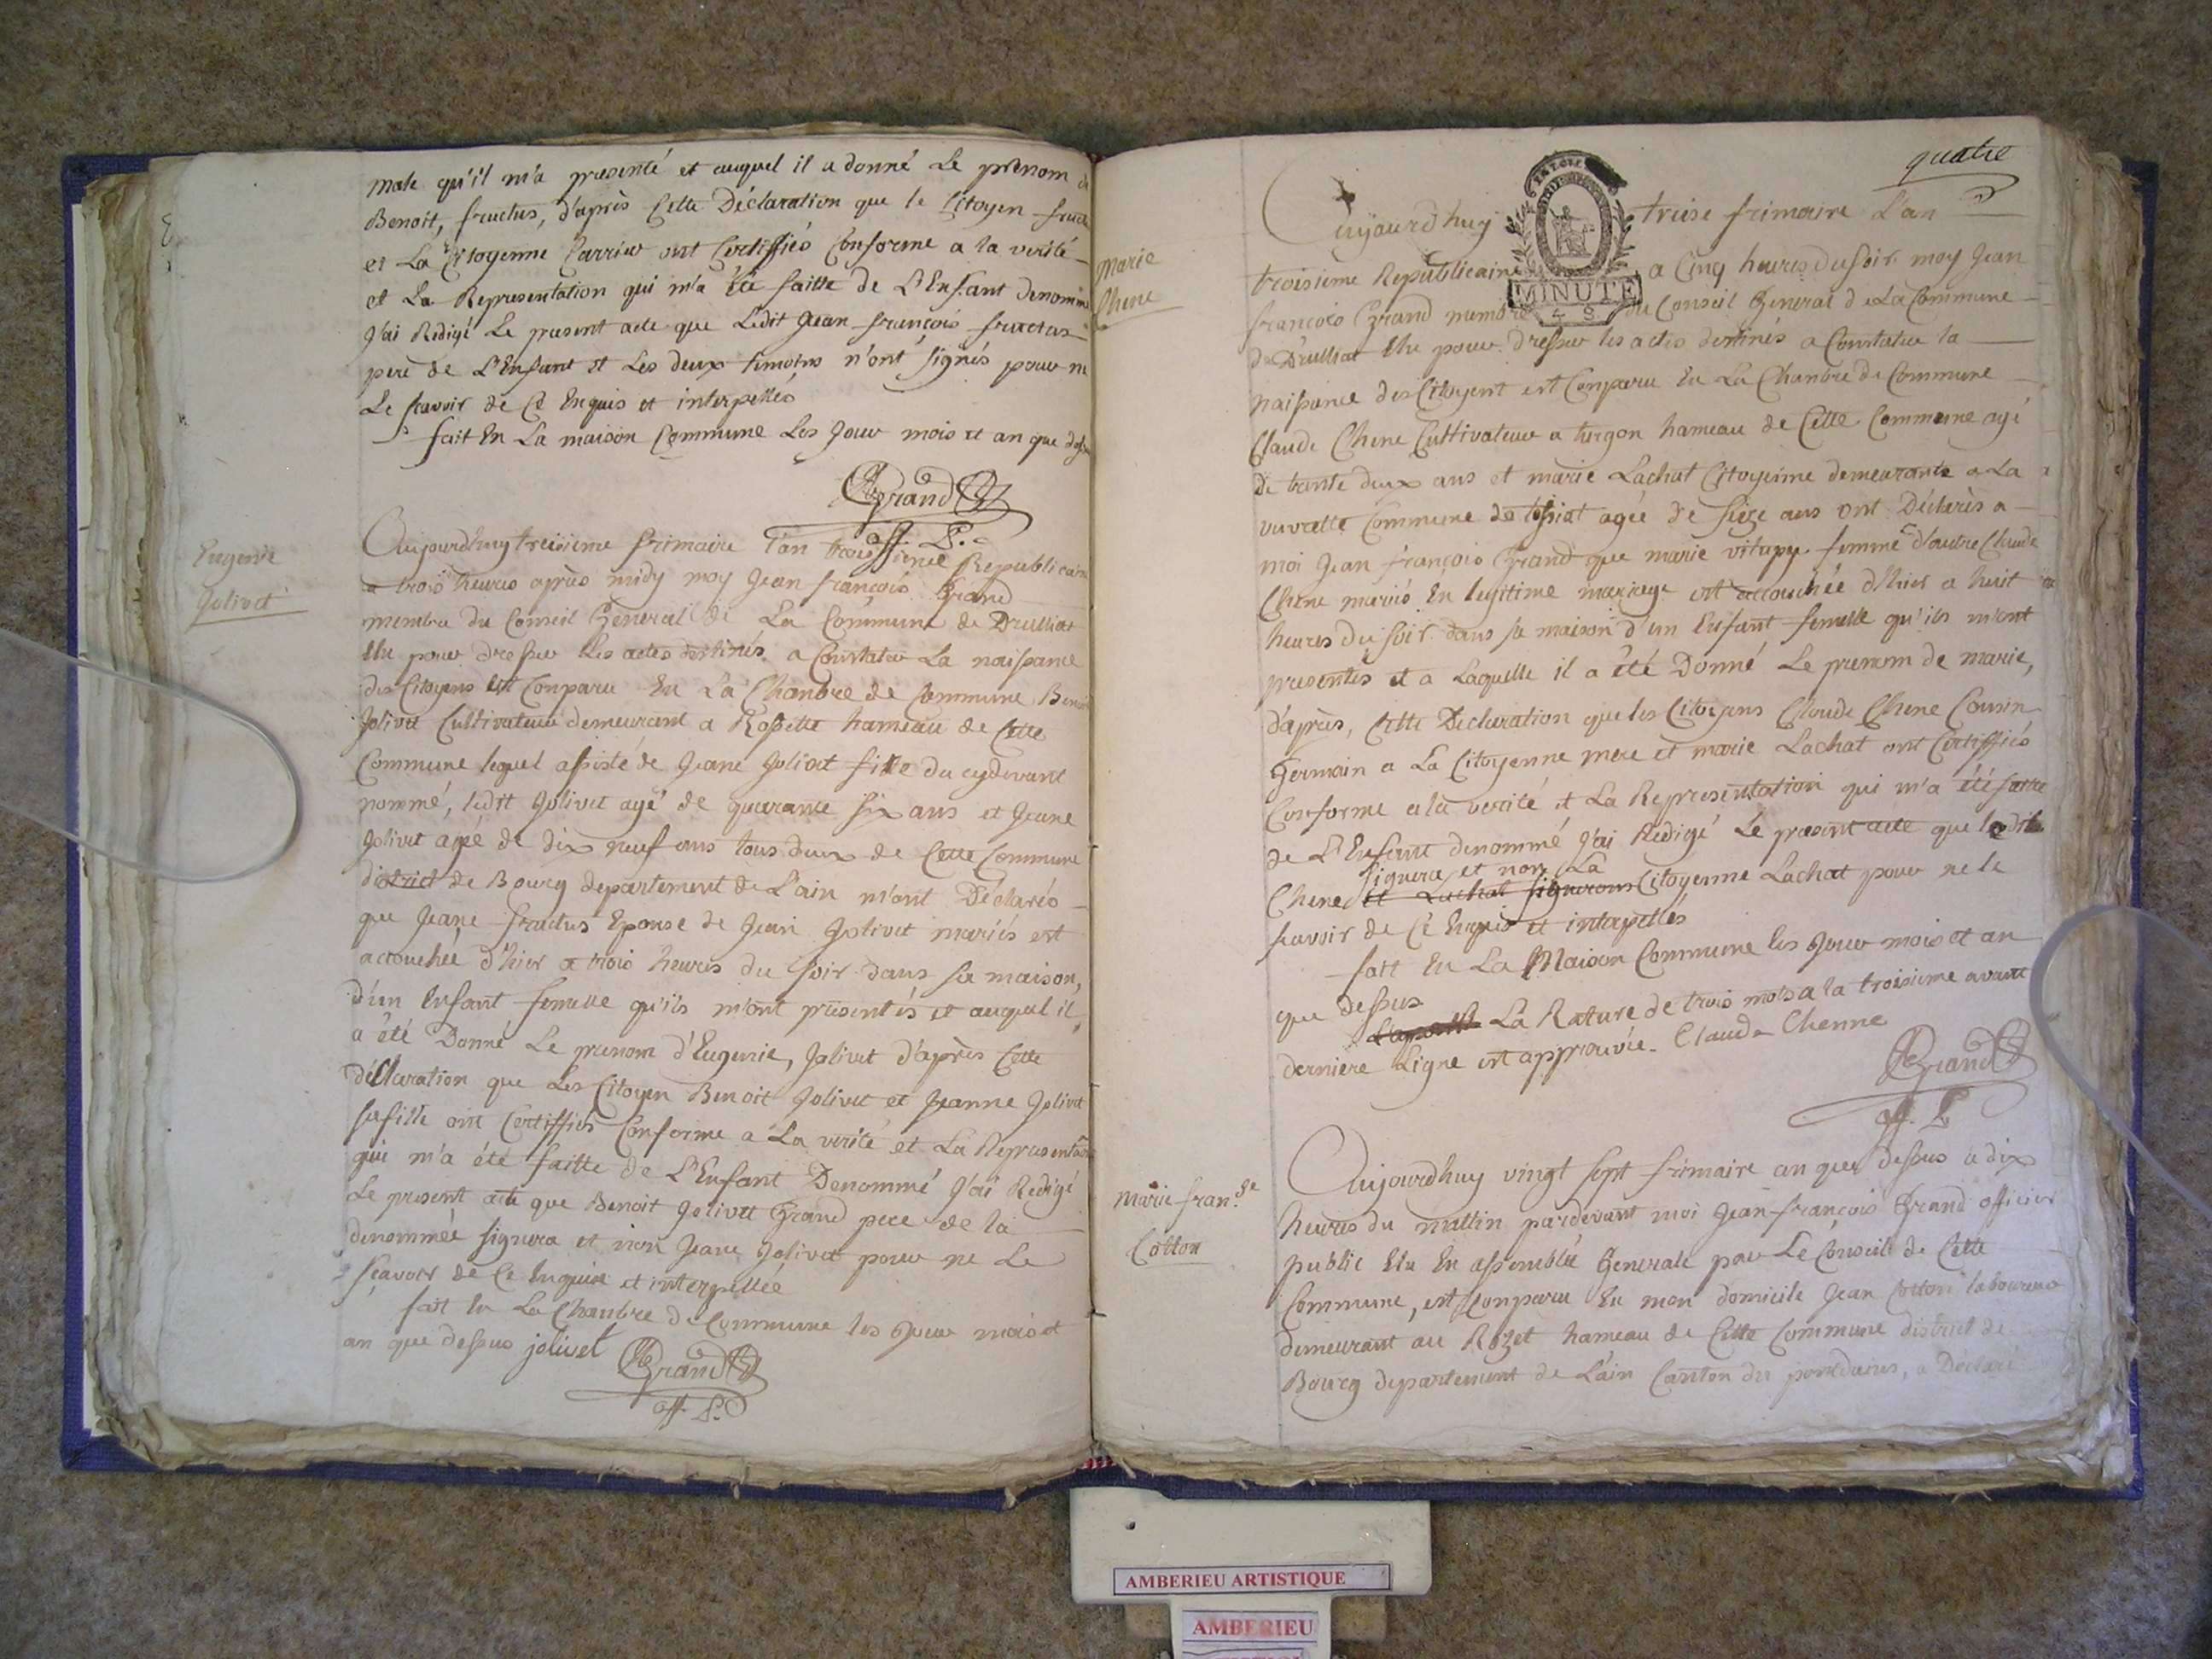 male qu'il m'a presenté et auquel il a donné Le prenom de
Benoit, fructus, d'après Cette Déclaration que le Citoyen
et La Citoyenne ont Certiffiés Conforme a la verité
et La Representation qui m'a été faitte de L'Enfant denommé
J'ai Redigé Le present acte que Ledit Jean françois fructus
pere de L'Enfant et Les deux temoins n'ont signés pour ne
Le scavoir de Ce Enquis et interpellés
fait En La maison Commune Les Jour mois et an que dessus
Grand
off. P.
Eugenie
Jolivet
Aujourdhuy treisieme frimaire l'an troisieme Republicain
a trois heures après midy moy Jean françois Grand
membre du Conseil General de La Commune de Drulliat
Elu pour dresser Les actes destinés a Constater La naissance
des Citoyens Est Conparu En La Chambre de Commune Benoit
Jolivet Cultivateur demeurant a Rossette hameau de Cette
Commune lequel assisté de Jeane Jolivet fille du cydevant
nommé, ledit Jolivet agé de quarante six ans et Jeane
Jolivet agé de dix neuf ans tous deux de Cette Commune
district de Bourg departement de L'ain m'ont Déclarés
que Jeane fructus Epouse de Jean Jolivet mariés est
accouchée d'hier a trois heures du soir dans sa maison,
d'un Enfant femelle qu'ils m'ont présentés et auquel il
a été Donné Le prenom d'Eugenie, Jolivet d'après Cette
déClaration que Les Citoyen Benoit Jolivet et Jeanne Jolivet
sa fille ont Certiffiés Conforme a La verité et La Representation
qui m'a été faitte de L'Enfant Denommé J'ai Redigé
Le present acte que Benoit Jolivet Grand pere de la
denommée signera et non Jeane Jolivet pour ne Le
sçavoir de Ce Enquise et interpellée
fait En La Chambre de Commune les Jour mois et
an que dessus jolivet Grand
off. P.
quatre
MINUTE
4 S
Marie
Chene
Aujourdhuy treise frimaire L'an
troisieme Republicaine, a Cinq heures du soir moy Jean
françois Grand membre du Conseil General de La Commune
de Drulliat Elu pour dresser les actes destinés a Constater la
naissance des Citoyent est Conparu En La Chambre de Commune
Claude Chene Cultivateur a turgon hameau de Cette Commune agé
de trante deux ans et marie Lachat Citoyenne demeurante a La
vuvrette Commune de tossiat agée de seize ans ont Déclarés a
moi Jean françois Grand que marie vitupy femme d'autre Claude
Chene mariés En legitime mariage est accouchée d'hier a huit
heures du soir dans sa maison d'un Enfant femelle qu'ils m'ont
presentés et a Laquelle il a été Donné Le prenom de marie,
d'après, Cette Declaration que les Citoyens Claude Chene Cousin
Germain a La Citoyenne mere et marie Lachat ont Certiffiés
Conforme a la verité et La Representation qui m'a été faitte
de L'Enfant denommé J'ai Redigé Le present acte que ledit
signera et non La
Chene et Lachat signerons Citoyenne Lachat pour ne le
scavoir de Ce Enquis et interpellés
fait En La Maison Commune les Jour mois et an
que dessus
La Rature de trois mots a la troisieme avant
derniere Ligne est approuvée. Claude Chenne
Grand
off. P
Marie fran.se
Cotton
Aujourdhuy vingt sept frimaire an que dessus a dix
heures du mattin pardevant moi Jean-françois Grand officier
public Elu En assemblée Generale pour Le Conseille de Cette
Commune, est Conparu En mon domicile Jean Cotton laboureur
demeurant au Rozet hameau de Cette Commune district de
Bourg departement de L'ain Canton du pontdains, a Déclaré
AMBERIEU ARTISTIQUE
AMBERIEU